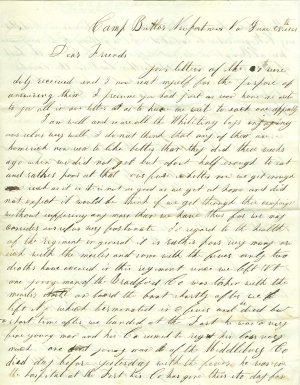 Camp Butler Newport News Va June
Dear Friends
your letters of the were
duly received and I now seat myself for the purpose of
answering them I presume you had just as soon have me write
to you all in one letter as to have me write to each one
I am well and so are all the Whiting boys enjoying
ourselves very well I do not think that any of them are
homesick now seem to like better than they did three weeks
ago when we did not get but about half enough to eat
and rather poor at that our food is better now we get enough
such as it is not as good as we get at home and did
not expect it would be think if we get through the campaign
without suffering any more than we have thus far we may
consider ourselves very fortunate In regard to the health
of the regiment in general it is rather poor very many are
sick with the measles and some with the fever only two
deaths have occurred in this regiment since we left
one young man of the Bradford Co was taken with the
measles on board the boat shortly after we
left N.Y. which terminated in a fever and died but
a short time after we landed at the Fort he was a very
fine young man and his Co
one young man of the Middlebury Co
died day before yesterday with the fever he was in
the hospital at the Fort his Co